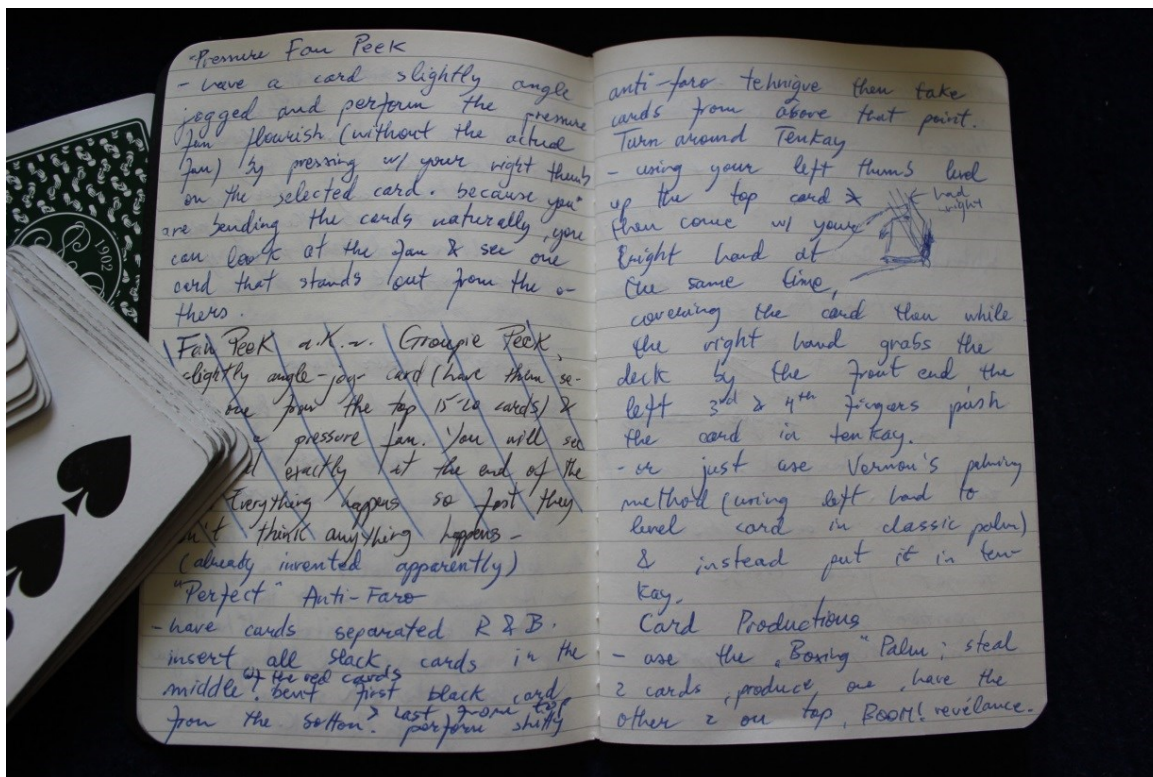 "Pressure Fan Peek
- have a card slightly angle
jogged and perform the pressure
fan flourish (without the actual
fan) by pressing w/ your right thumb
on the selected card. because you
are bending the cards naturally, you
can look at the fan & see one
card that stands out from the o-
thers.
Fan Peek a.k.a. Groupie Peek,
slightly angle-jog card (have them se-
one from the top 15-20 cards) &
pressure fan. You will see
exactly at the end of the
Everything happens so fast they
think anything happens -
(already invented apparently)
"Perfect" Anti-Faro
- have cards separated R & B.
insert all black cards in the
of the red cards
middle? bent first black card
from the bottom? last from top
perform shitty
anti-faro tehnique then take
cards from above that point.
Turn around Tenkay
- using your left thumb level
up the top card &
then come w/ your
right hand at
the same time,
had
right
covering the card then while
the right hand grabs the
deck by the front end, the
left 3rd & 4th fingers push
the card in tenkay.
- or just use Vernon's palming
method (using left hand to
level card in classic palm)
& instead put it in ten-
kay.
Card Productions
- use the "Boxing" Palm; steal
2 cards, produce one, have the
other 2 on top, BOOM! revélance.
1902